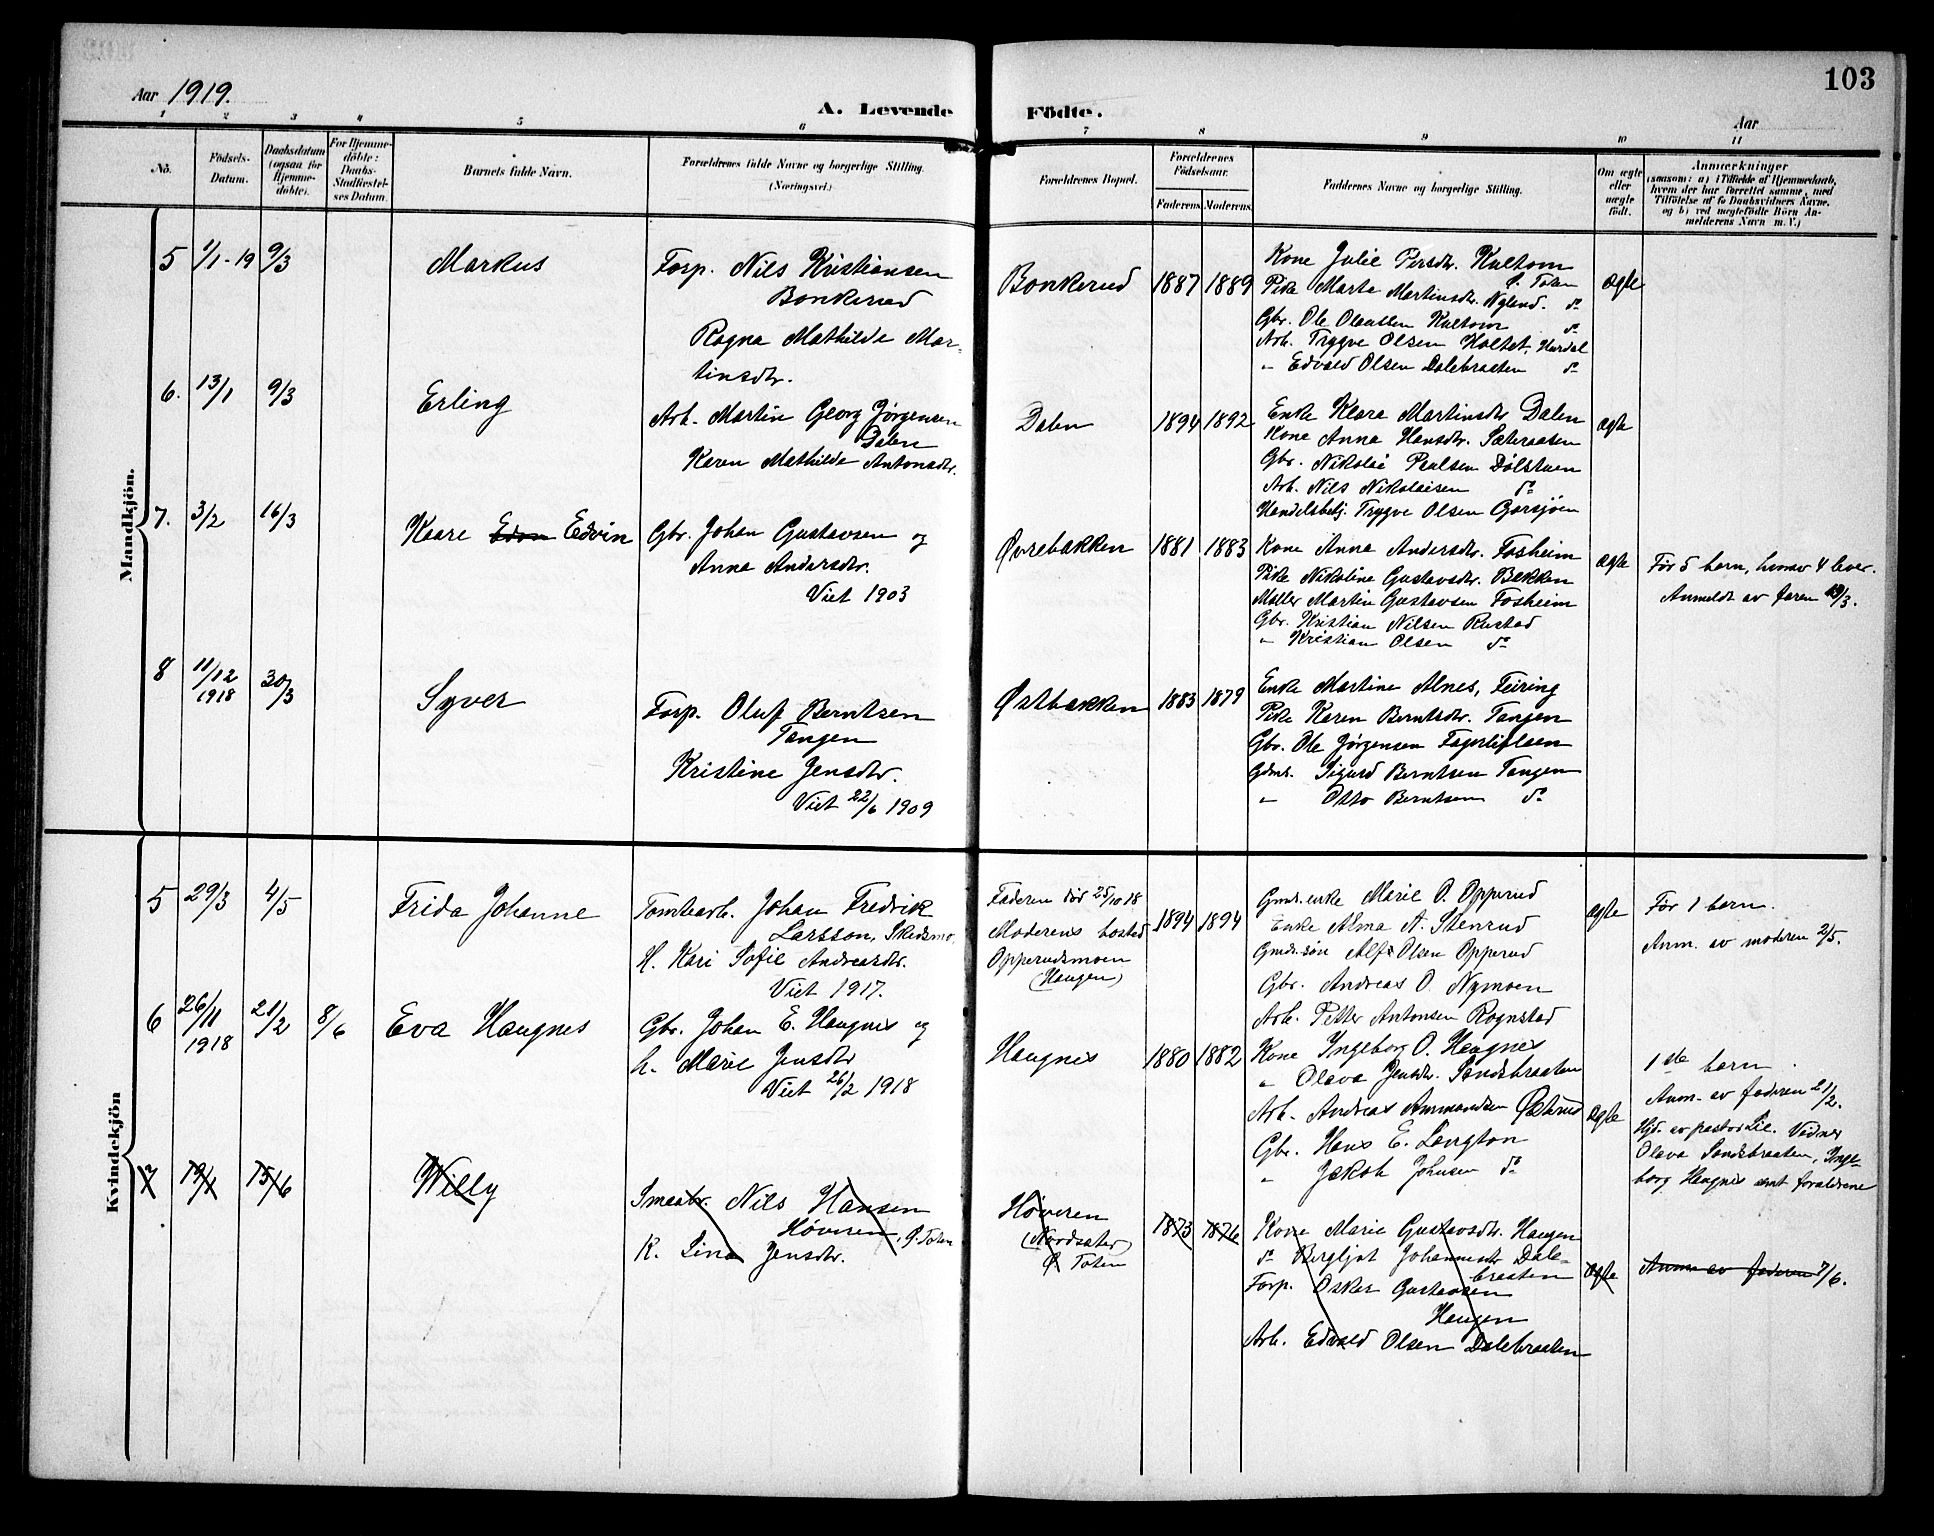 103
Aar 1919.
A. Levende Födte.
Aar
1 2 3 4 5 6 7 8 9 10 11
No.
Födsels-
Datum.
Daabsdatum
(ogsaa for
Hjemme-
döbte).
For Hjemme-
döbte:
Daabs-
Stadfæstel-
ses Datum.
Barnets fulde Navn.
Forældrenes fulde Navne og borgerlige Stilling.
(Næringsvei.)
Forældrenes Bopæl.
Forældrenes
Födselsaar.
Faderens Moderens
Faddernes Navne og borgerlige Stilling.
Om ægte
eller
uægte
födt.
Anmærkninger
(saasom: a) i Tilfælde af Hjemmedaab,
hvem der har forrettet samme, med
Tilföielse af to Daabsvidners Navne.
og b) ved uægtefödte Börn An-
melderens Navn m. V.)
Mandkjön.
5 1/1-19 9/3 Markus
Forp. Nils Kristiansen
Bonkerud
Ragna Mathilde Mar-
tinsdtr.
Bonkerud 1887 1889
Kone Julie Persdtr. Kultom
Ø. Toten
Pike Marta Martinsdtr. Nylend. do
Gbr. Ole Olaussen Kultom do
Arb. Trygve Olsen Holtet, Hurdal
" Edvald Olsen Dalebraaten do
ægte
6. 13/1 9/3 Erling
Arb. Martin Georg Jørgensen
Dalen
Karen Mathilde Antonsdtr.
Dalen 1894 1892
Enke Klara Martinsdtr Dalen
Kone Anna Hansdtr. Sæteraasen
Gbr. Nikolai Paulsen Dølstuen
Arb. Nils Nikolaisen do
Handelsbetj. Trygve Olsen Garsjøen
ægte
7. 3/2 16/3 Kaare Edvin
Gbr. Johan Gustavsen og
Anna Andersdtr.
Viet 1903
Øvrebakken 1881 1883
Kone Anna Andersdtr. Fosheim
Pike Nikoline Gustavsdtr. Bakken
Møller Martin Gustavsen Fosheim
Gbr. Kristian Nilsen Rustad
" Kristian Olsen do
ægte
Før 5 barn, hvorav 4 lever.
Anmeldt av faren 13/3.
8 11/12 1918 30/3 Syver
Forp. Oluf Berntsen
Tangen
Kristine Jensdtr.
Viet 22/6 1909
Østbakken 1883 1879
Enke Martine Alnes, Feiring
Pike Karen Berntsdtr. Tangen
Gbr. Ole Jørgensen Fagerliflaen
Gdmr. Sigurd Berntsen Tangen
" Otto Berntsen do
Kvindekjön
5 29/3 4/5 Frida Johanne
Tomtearb. Johan Fredrik
Larsson, Skedsmo,
H. Kari Sofie Andreasdtr.
Viet 1917.
Faderen død 25/10 18
Moderens bosted
Opperudsmoen
(Haugen)
1894 1894
Gmdr. enke Marie O. Opperud
Enke Alma A. Stenrud
Gmdr. søn Alf Olsen Opperud
Gbr. Andreas O. Nymoen
Arb. Petter Antonsen Rognstad
ægte
Før 1 barn.
Anm. av moderen 2/5.
6 26/11 1918 21/2 8/6 Eva Haugnes
Gbr. Johan E. Haugnes og
h. Marie Jensdtr
Viet 26/2 1918
Haugnes 1880 1882
Kone Ingeborg O. Haugnes
" Olava Jensdtr. Sandsbraaten
Arb. Andreas Ammundsen Østrud
Gbr. Hans E. Langton
" Jakob Johnsen do
ægte
1ste barn.
Anm. av faderen 21/2.
Hjd. av pastor Lie. Vidner
Olava Sandsbraaten, Inge-
borg Haugnes samt forældrene
7 19/4 15/6 Willy
Smaabr. Nils Hansen
Høveren, Ø. Toten
K. Lina Jensdtr.
Høveren
(Nordsæter)
Ø Toten
1873 1876
Kone Marie Gustavsdtr. Haugen
do Bergljot Johannesdtr Dale-
braaten
Forp. Oskar Gustavsen
Haugen
Arb. Edvald Olsen Dalebraaten
ægte
Anm. av faderen 7/6.